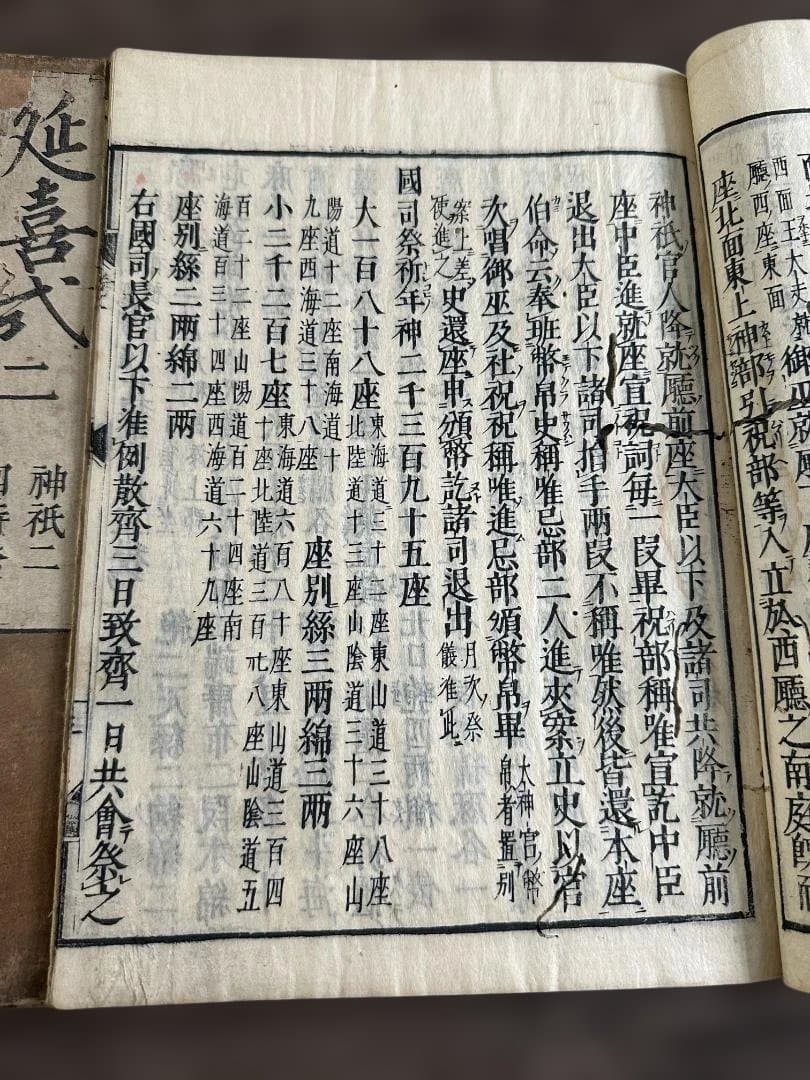 西面王大夫就
廳西座東面
御巫就
座北面東上神部引祝部等入立於西廳之南庭
神祇官人降就廳前座大臣以下及諸司共降就廳前
座中臣進就座宣祝詞每一段畢祝部稱唯宣訖中臣
退出大臣以下諸司拍手兩段不稱唯然後皆還本座
伯命云奉班幣帛史稱唯忌部二人進夾案立史以官
次唱御巫及社祝祝稱唯進忌部頒幣帛畢
大神宮幣
帛者置別
案上差
使進之
史還座申頒幣訖諸司退出
月次祭
儀准此
國司祭祈年神二千三百九十五座
大一百八十八座
東海道三十二座東山道三十八座
北陸道十三座山陰道三十六座山
陽道十二座南海道十
九座西海道三十八座
座別絲三兩綿三兩
小二千二百七座
東海道六百八十座東山道三百四
十座北陸道三百卅八座山陰道五
百二十二座山陽道百二十四座南
海道百三十四座西海道六十九座
座別絲二兩綿二兩
右國司長官以下准例散齊三日致齊一日共會祭之
延喜式 二
神祇二